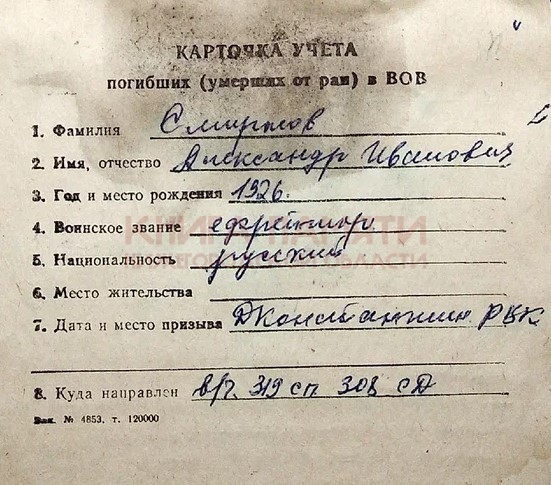 КАРТОЧКА УЧЕТА
погибших (умерших от ран) в ВОВ
1. Фамилия Смирнов
2. Имя, отчество Александр Иванович
3. Год и место рождения 1926.
4. Воинское звание ефрейтор
5. Национальность русский
6. Место жительства
7. Дата и место призыва Д Константин РВК
8. Куда направлен в/ч. 319 сп 308 сд
Зак. № 4853. т. 120000
КНИГА ПАМЯТИ